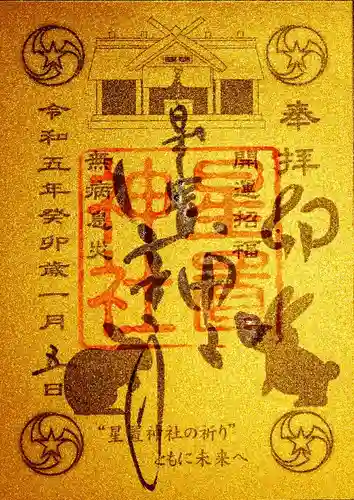 奉拝
卯
開運招福
星置神社
星置神社
無病息災
令和五年癸卯歳一月五日
“星置神社の祈り”
ともに未来へ